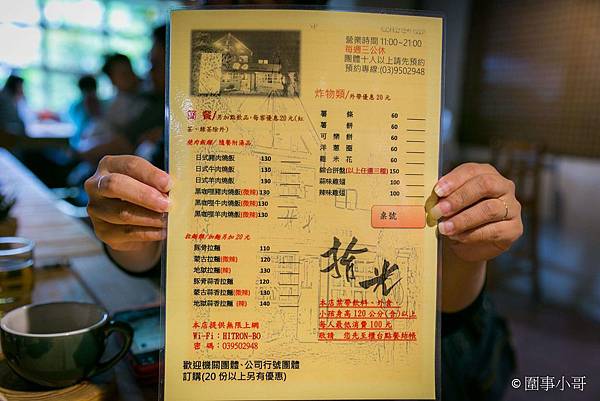 營業時間 11:00~21:00
每週三公休
團體十人以上請先預約
預約專線:(03)9502948
套餐/另加點飲品,每客優惠20元(紅茶、綠茶除外)
燒肉飯類/隨餐附湯品
日式豬肉燒飯 130
日式牛肉燒飯 130
日式羊肉燒飯 130
黑咖哩豬肉燒飯(微辣) 130
黑咖哩牛肉燒飯(微辣) 130
黑咖哩羊肉燒飯(微辣) 130
拉麵類/加麵另加20元
豚骨拉麵 110
蒙古拉麵(微辣) 120
地獄拉麵(辣) 130
豚骨蒜香拉麵 120
蒙古蒜香拉麵(微辣) 130
地獄蒜香拉麵(辣) 140
本店提供無限上網
Wi-Fi:HITRON-BO
密碼:039502948
歡迎機關團體、公司行號團體
訂購(20份以上另有優惠)
炸物類/外帶優惠20元
薯條 60
薯餅 60
可樂餅 60
洋蔥圈 60
雞米花 60
綜合拼盤(以上任選三種) 150
蒜味雞翅
辣味雞翅
桌號
拾光
本店禁帶飲料、外食
小孩身高120公分(含)以上
每人最低消費100元
敬請 您先至櫃台點餐結帳
© 圍事小哥